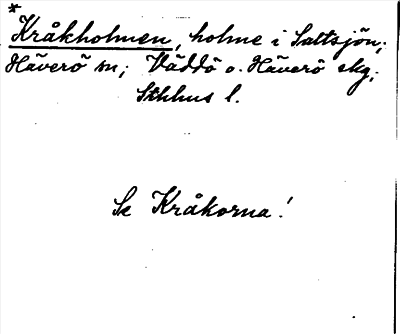 *
Kråkholmen, holme i Saltsjön;
Häverö sn; Väddö o. Häverö skg;
Sthlms l.
Se Kråkorna!